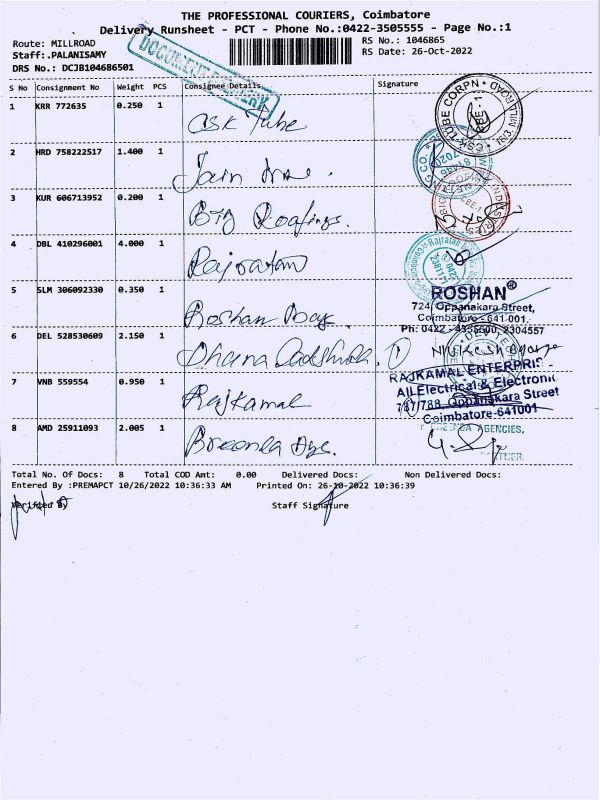 THE PROFESSIONAL COURIERS, Coimbatore
Delivery Runsheet - PCT - Phone No.:0422-3505555 - Page No.:1
Route: MILLROAD
RS No.: 1046865
Staff:.PALANISAMY
RS Date: 26-Oct-2022
DRS No.: DCJB104686501
DOCUMENT
S No Consignment No Weight PCS Consignee Details Signature
1 KRR 772635 0.250 1 CSK Tube
CSK TUBE CORPN
2 HRD 758222517 1.400 1 Jain
3 KUR 606713952 0.200 1 Big Roofings.
4 DBL 410296001 4.000 1 Rajratan
Rajratan
5 SLM 306092330 0.350 1 Roshan Bags
ROSHAN®
724, Oppanakara Street,
Coimbatore-641 001.
Ph: 0422 - 2304557
6 DEL 528530609 2.150 1 Dhana
7 VNB 559554 0.950 1 Rajkamal
RAJKAMAL ENTERPRIS
All Electrical & Electronic
787/788, Oppanakara Street
Coimbatore-641001
8 AMD 25911093 2.005 1
AGENCIES,
Total No. Of Docs: 8 Total COD Amt: 0.00 Delivered Docs: Non Delivered Docs:
Entered By :PREMAPCT 10/26/2022 10:36:33 AM Printed On: 26-10-2022 10:36:39
Verified By Staff Signature